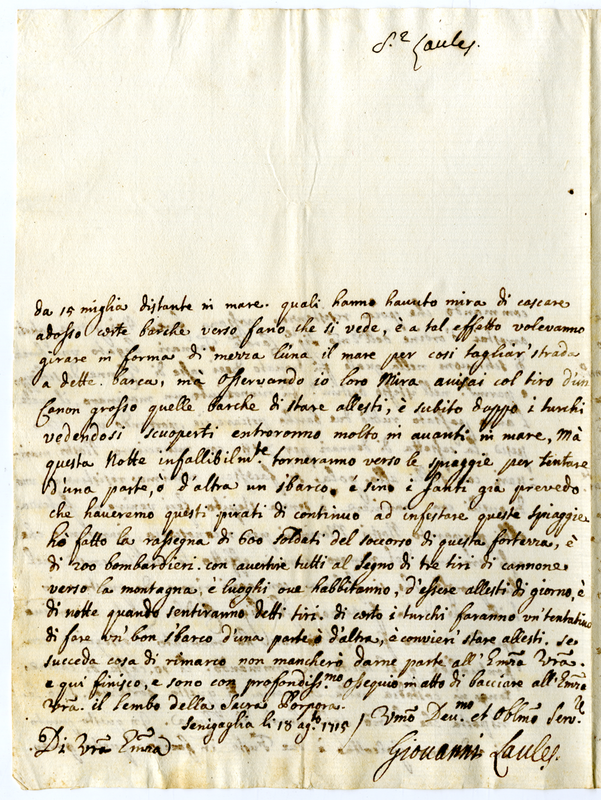 S.r Laules.
da 15 miglia distante in mare. quali hanno hauuto mira di cascare
adosso certe barche verso fano, che si vede, è a tal effetto volevanno
girare in forma di mezza luna il mare per cosi tagliar' strada
a dette barca, mà osservando io loro Mira auisai col tiro d'un
Canon grosso quelle barche di stare allesti, è subito doppo i turchi
vedendosi scuoperti entroronno molto in auanti in mare, Mà
questa Notte infallibilm.te torneranno verso le spiaggie per tentare
d'una parte, ò d'altra un sbarco, è sino i Santi già prevedo
che haueramo questi pirati di continuo ad infestare queste spiaggie
hò fatto la rassegna di 600 soldati del soccorso di questa fortezza, è
di 200 bombardieri. con auertire tutti al segno di tre tiri di cannone
verso la montagna, è luoghi oue habbitanno, d'essere allesti di giorno, è
di notte quando sentiranno detti tiri. di certo i turchi faranno vn' tentatiuo
di fare vn' bon sbarco d'una parte ò d'altra, è convien' stare allesti. se
succeda cosa di rimarco non mancherò darne parte all' Emza Vra.
e qui finisco, e sono con profondiss.mo ossequio in atto di bacciare all' Emza
Vra. il lembo della Sacra Porpora.
Senigaglia li 18 ag.to 1715 / Vmo Deu.mo et Oblmo Serv.re
Di Vra Emza
Giouanni Laules.